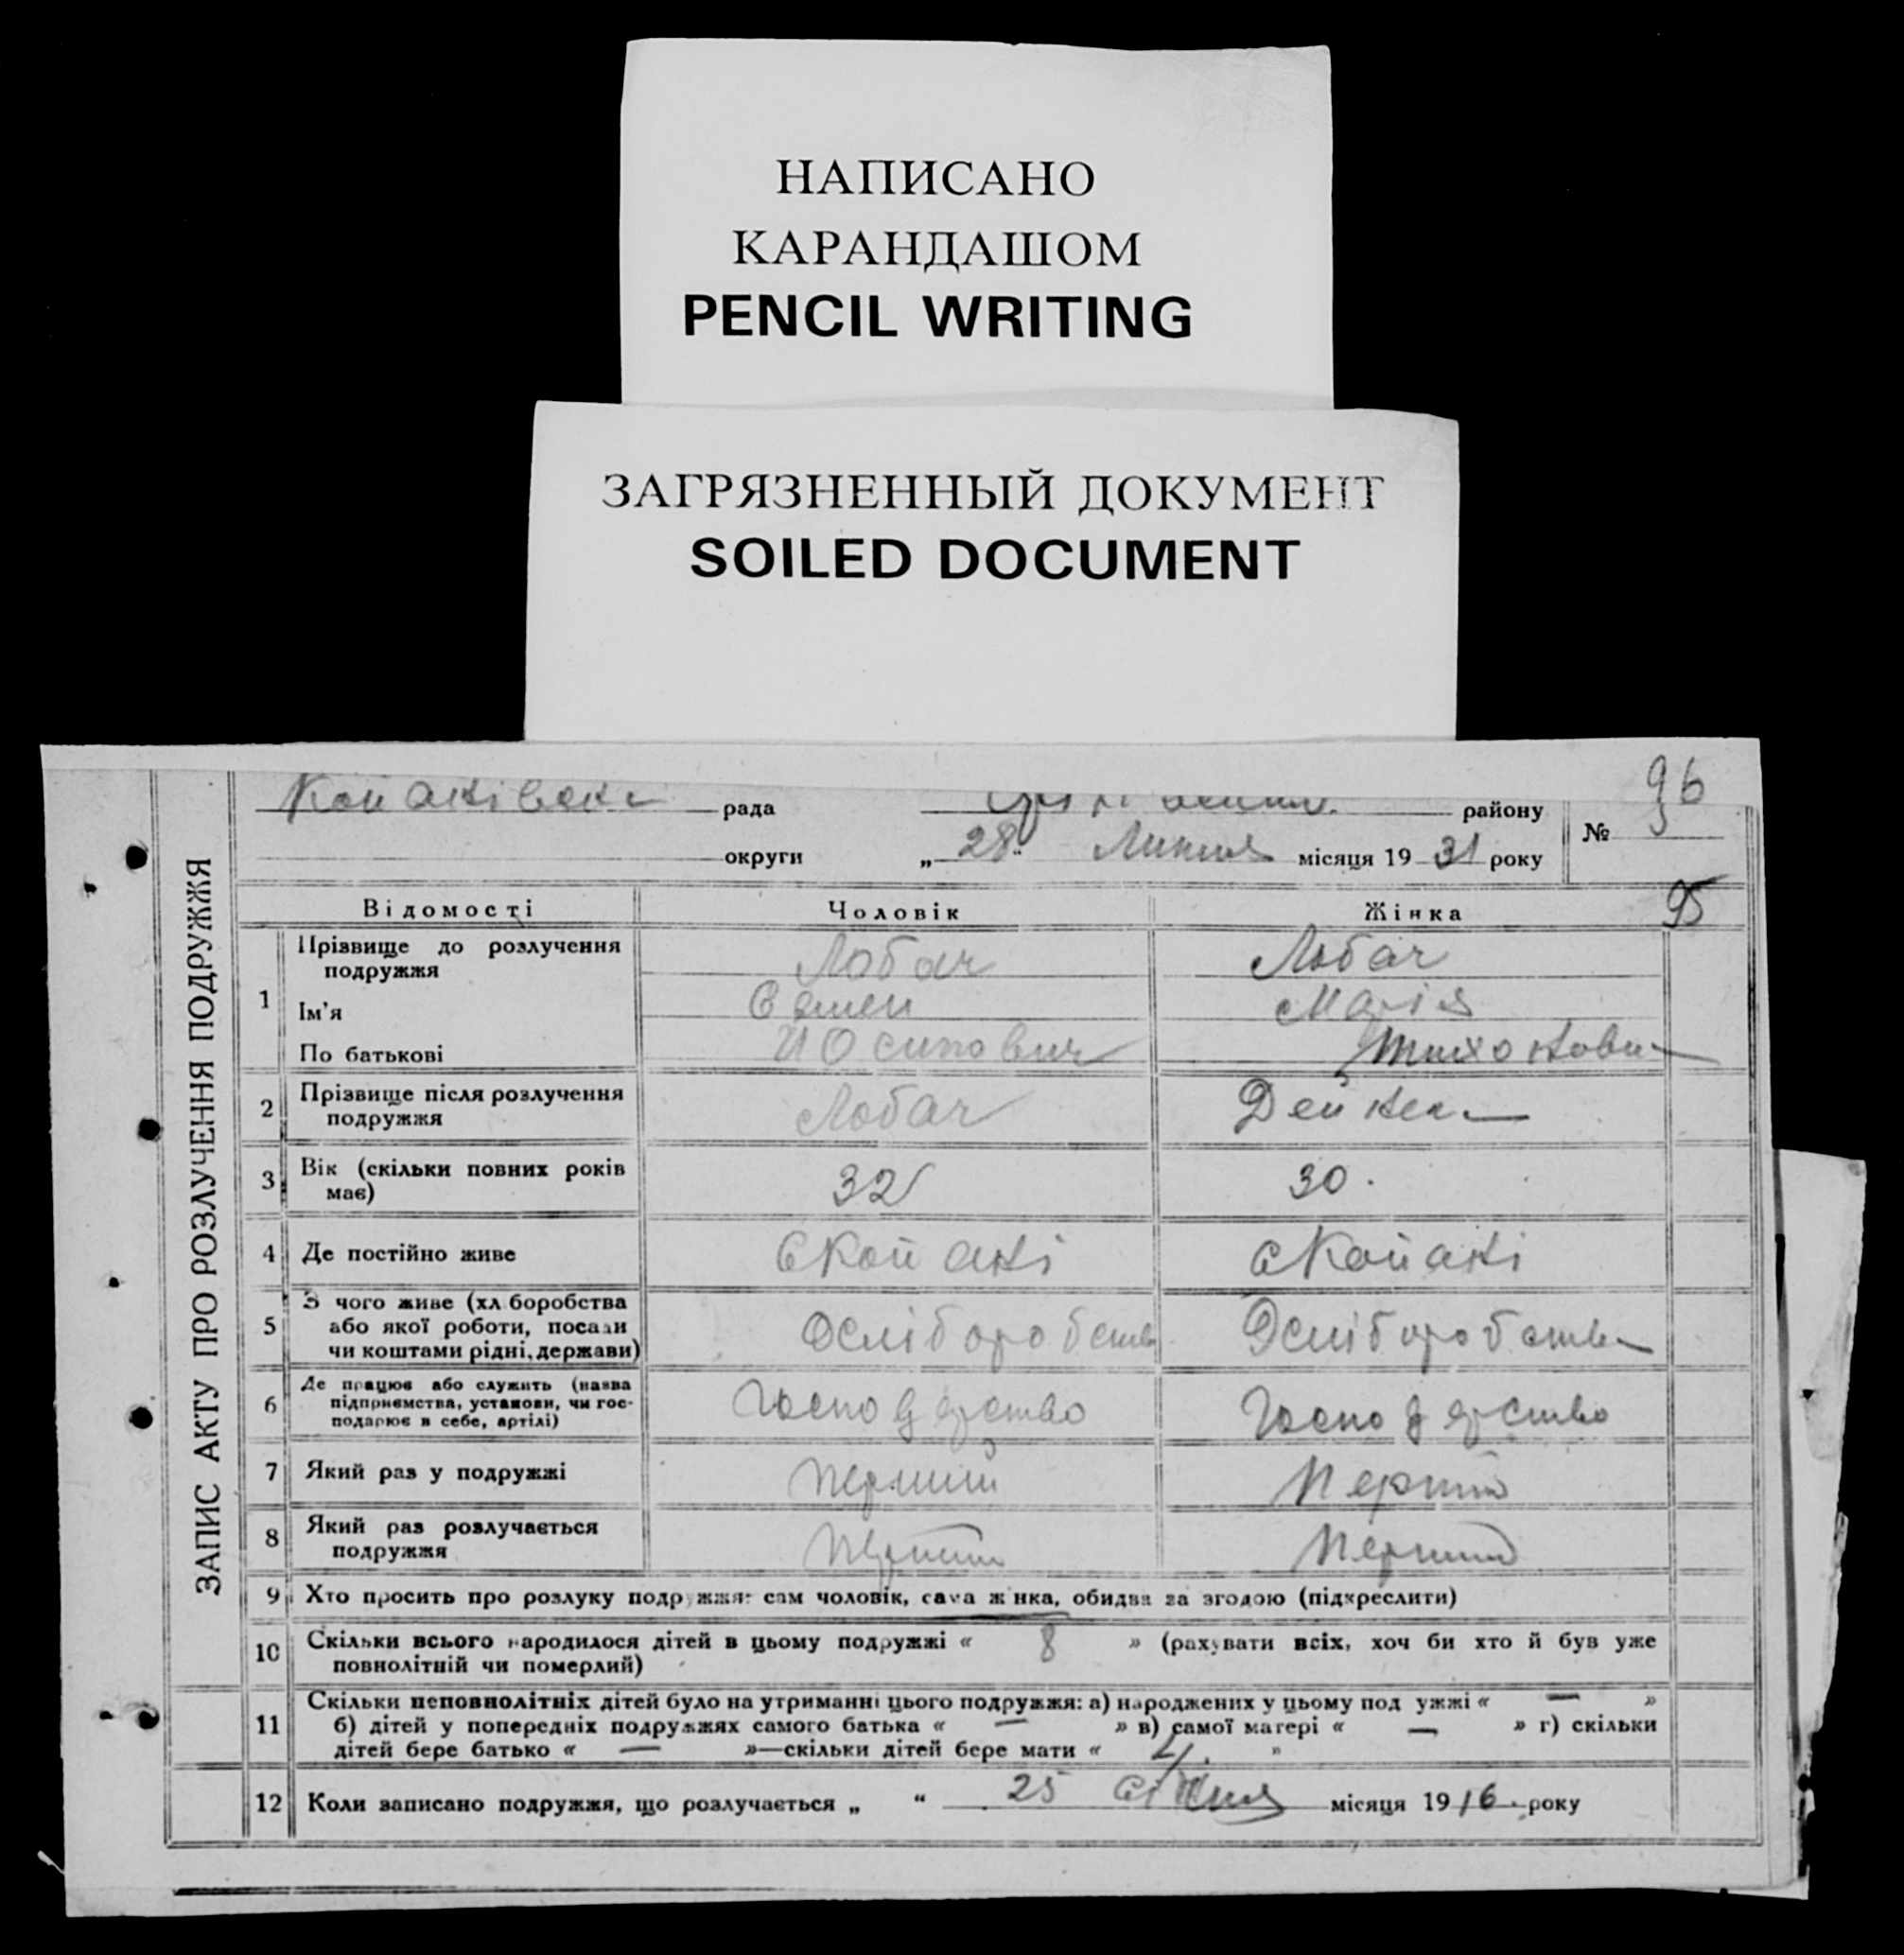 НАПИСАНО
КАРАНДАШОМ
PENCIL WRITING
ЗАГРЯЗНЕННЫЙ ДОКУМЕНТ
SOILED DOCUMENT
96
рада району
№ 5
округи „28“ Липня місяця 1931 року
95
ЗАПИС АКТУ ПРО РОЗЛУЧЕННЯ ПОДРУЖЖЯ
Відомості Чоловік Жінка
1 Прізвище до розлучення подружжя Лобач Лобач
Ім'я Семен Марія
По батькові Йосипович
2 Прізвище після розлучення подружжя Лобач
3 Вік (скільки повних років має) 32 30.
4 Де постійно живе
5 З чого живе (хлiборобства або якої роботи, посади чи коштами рідні, держави)
6 Де працює або служить (назва підприємства, установи, чи господарює в себе, артілі) Господарство Господарство
7 Який раз у подружжі Перший Перший
8 Який раз розлучається подружжя Перший Перший
9 Хто просить про розлуку подружжя: сам чоловік, сама жінка, обидва за згодою (підкреслити)
10 Скільки всього народилося дітей в цьому подружжі « 8 » (рахувати всіх, хоч би хто й був уже
повнолітній чи померлий)
11 Скільки неповнолітніх дітей було на утриманні цього подружжя: а) народжених у цьому подружжі « — »
б) дітей у попередніх подружжях самого батька « — » в) самої матері « — » г) скільки
дітей бере батько « — »—скільки дітей бере мати « 4. »
12 Коли записано подружжя, що розлучається „ “ 25 Січня місяця 1916. року